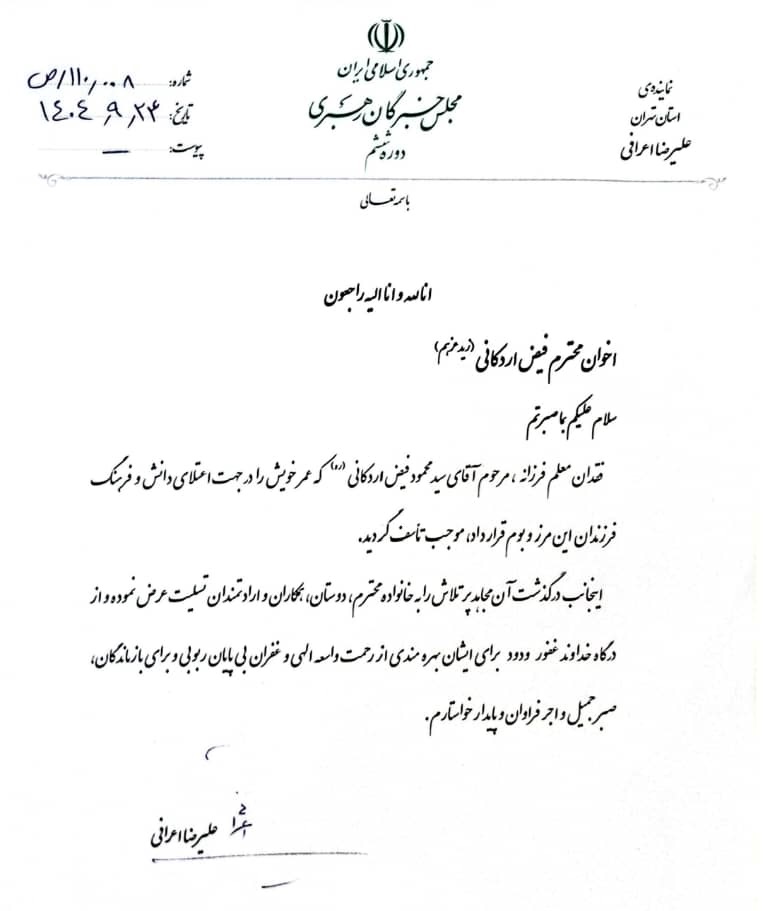 جمهوری اسلامی ایران
مجلس خبرگان رهبری
دوره ششم
نماینده‌ی
استان تهران
علیرضا اعرافی
شماره: ۱۱۰/۰۰۸/ص
تاریخ: ۱۴۰۴/۹/۲۳
پیوست: —
باسمه تعالی
انا لله و انا الیه راجعون
اخوان محترم فیض اردکانی (زید عزهم)
سلام علیکم بما صبرتم
فقدان معلم فرزانه، مرحوم آقای سید محمود فیض اردکانی (ره) که عمر خویش را در جهت اعتلای دانش و فرهنگ
فرزندان این مرز و بوم قرار داد، موجب تأسف گردید.
اینجانب درگذشت آن مجاهد پر تلاش را به خانواده محترم، دوستان، همکاران و ارادتمندان تسلیت عرض نموده و از
درگاه خداوند غفور ودود برای ایشان بهره مندی از رحمت واسعه الهی و غفران بی پایان ربوبی و برای بازماندگان،
صبر جمیل و اجر فراوان و پایدار خواستارم.
علیرضا اعرافی